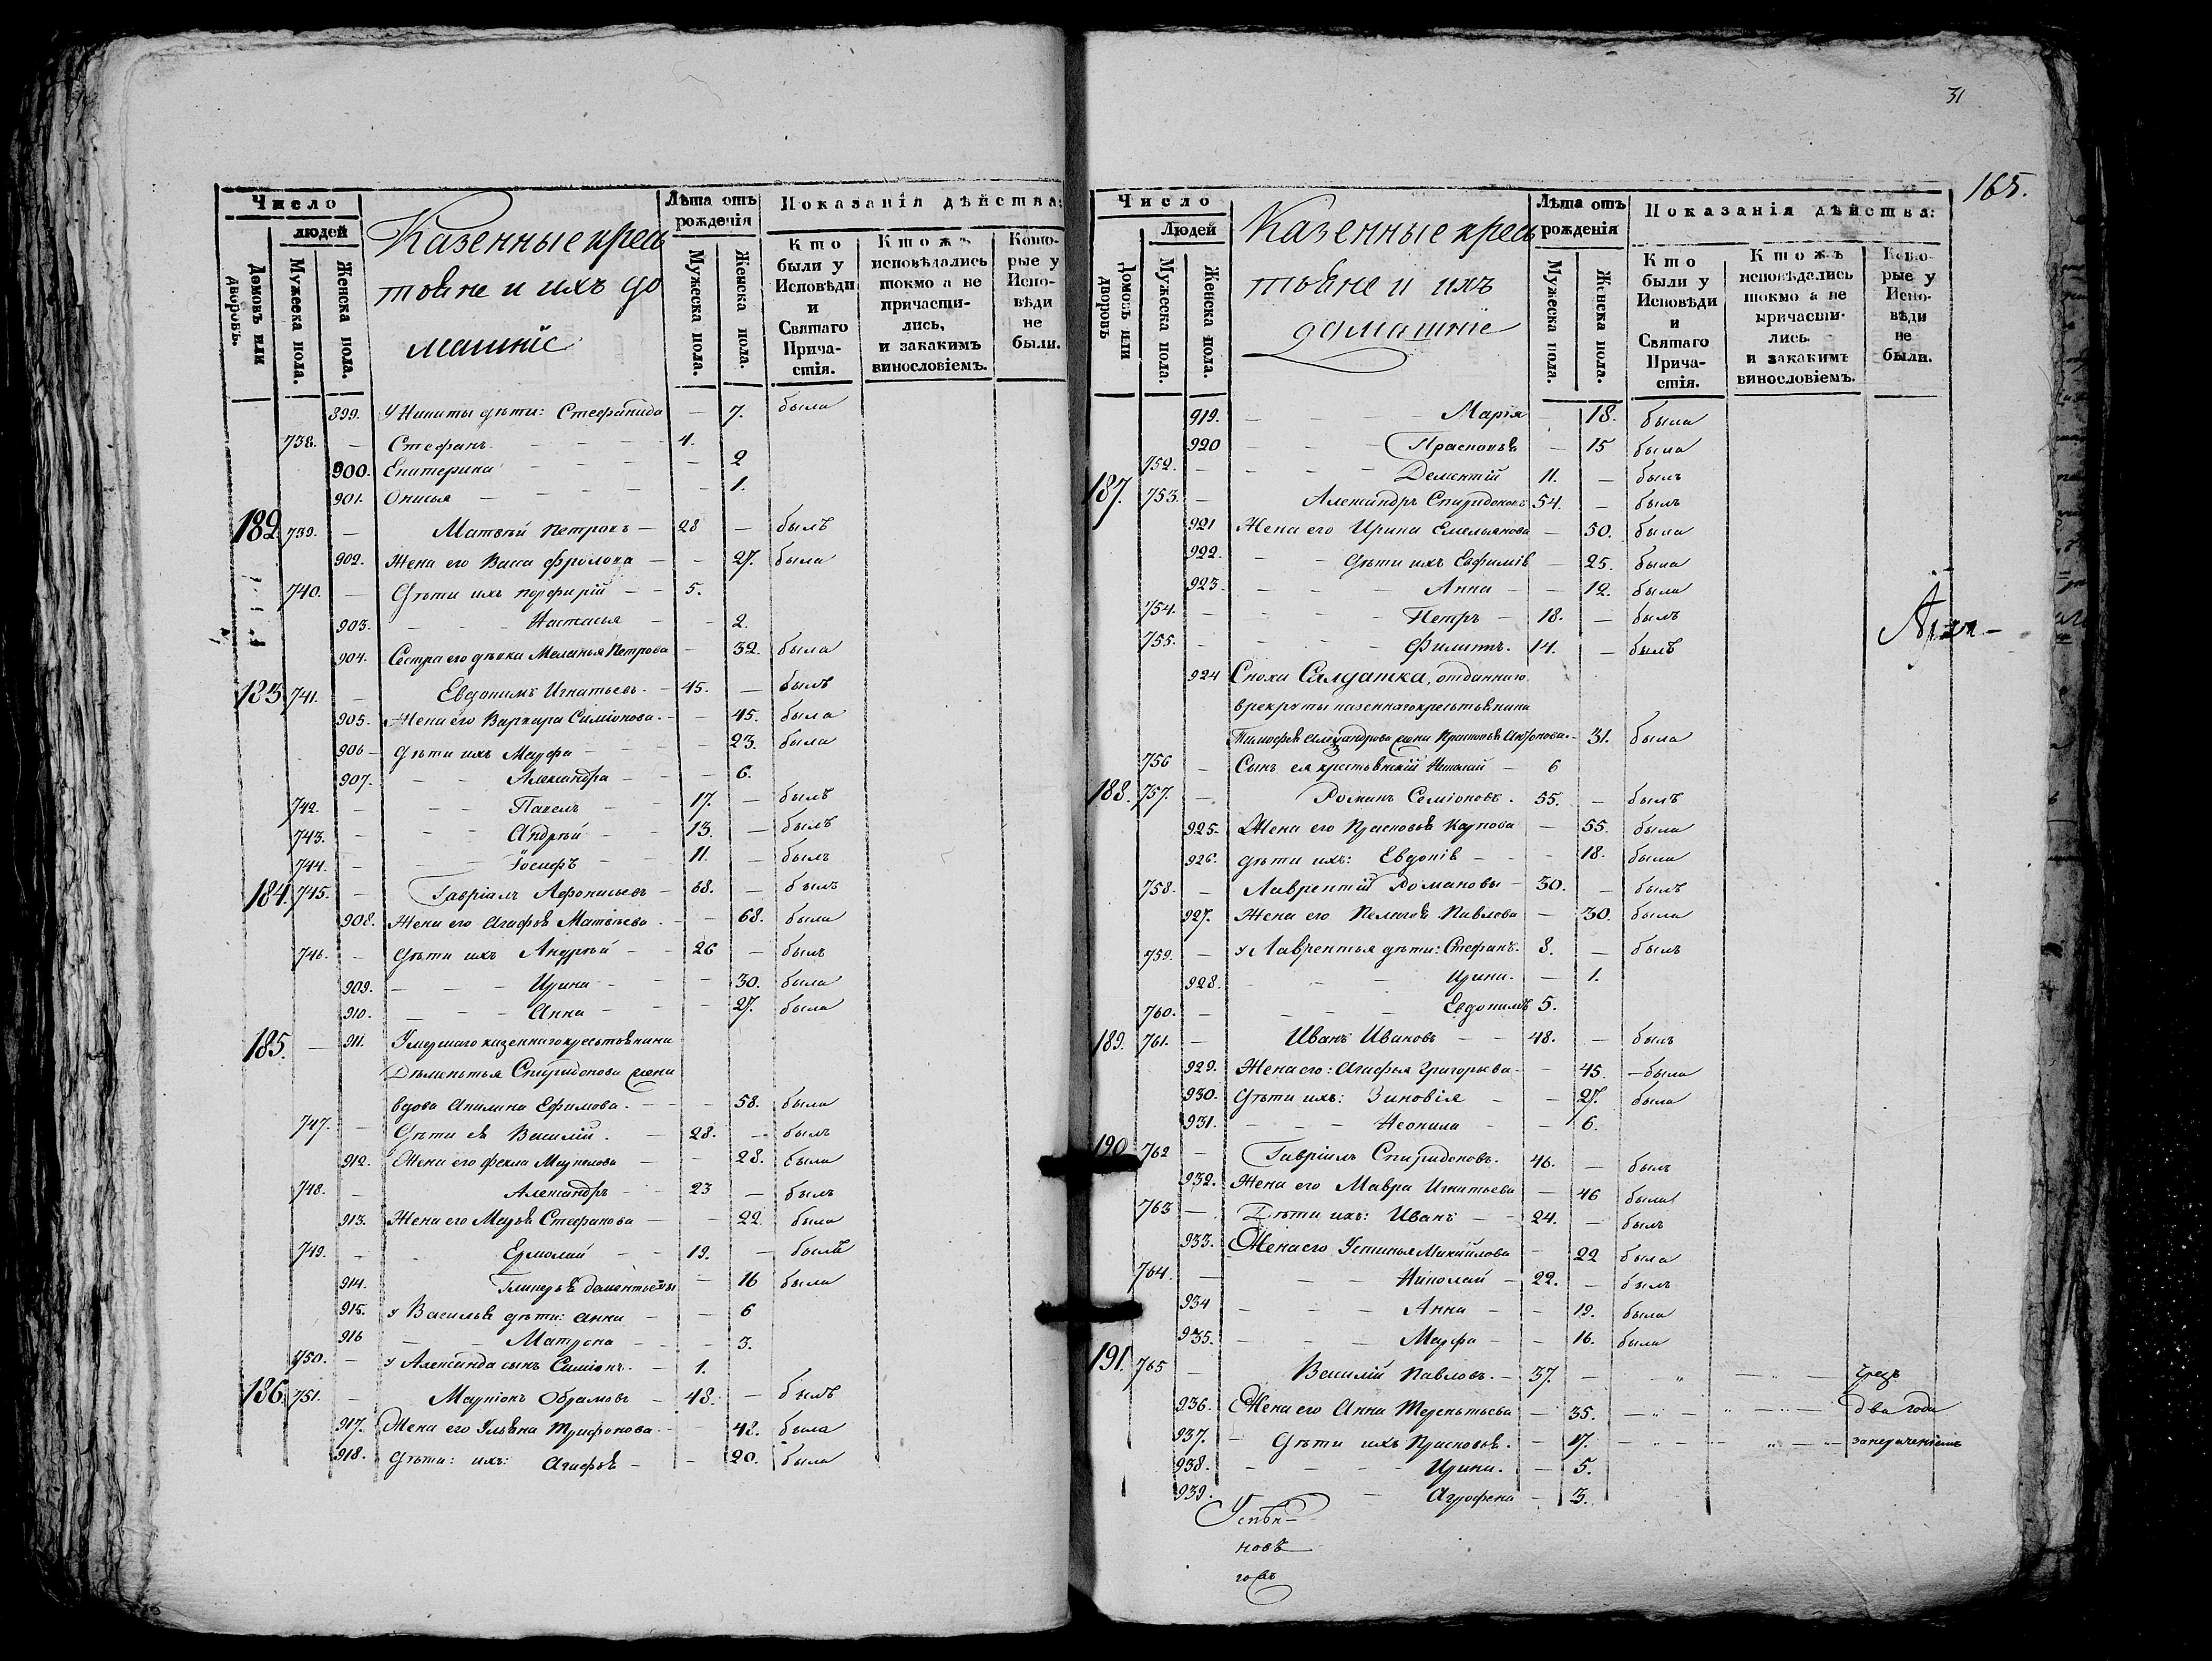 Число
людей
Домовъ или дворовъ.
Мужеска пола.
Женска пола.
Казенные кресь
тьяне и ихъ до
машніе
Лѣта отъ рожденія
Мужеска пола.
Женска пола.
Показанія дѣйства:
Кто были у Исповѣди и Святаго Причастія.
Ктожъ исповѣдались токмо а не причастились, и закакимъ винословіемъ.
Которые у Исповѣди не были.
899. У Никиты дѣти: Стефанида — 7. была
738. — Стефанъ — 4.
900. Екатерина — 2
901. Онисья — 1.
182. 739. — Матвѣй Петровъ — 28 — былъ
902. Жена его Васса Фролова — 27. была
740. — Дѣти ихъ Порфирій — 5.
903. Настасья — 2.
904. Сестра его дѣвка Меланья Петрова — 32. была
183. 741. — Евдокимъ Игнатьевъ — 45. — былъ
905. Жена его Варвара Симіонова — 45. была
906 — Дѣти ихъ Марфа — 23. была
907. Александра — 6.
742. — Павелъ — 17. — былъ
743. — Андрей — 13. — былъ
744. — Іосифъ — 11. — былъ
184. 745. — Гавріилъ Афонасьевъ — 68. — былъ
908. Жена его Агафья Матвѣева — 68. была
746. — Дѣти ихъ Андрей — 26 — былъ
909. — Ирина — 30. была
910. — Анна — 27. была
185. — 911. Умершаго казеннаго крестьянина
Дѣментья Спиридонова жена
вдова Акилина Ефимова — 58. была
747. — Дѣти ея Василій — 28. — былъ
912. Жена его Фекла Маркелова — 28. была
748. — Александръ — 23 — былъ
913. Жена его Марья Стефанова — 22. была
749. — Ермолай — 19. — былъ
914. Гликерья Дементьевы — 16 была
915. у Василья дѣти: Анна — 6
916 — Матрона — 3.
750. — у Александа сынъ Симіонъ — 1.
186. 751. — Маркіонъ Обрамовъ — 48. — былъ
917. Жена его Ульяна Трифонова — 48. была
918. Дѣти: ихъ: Агафья — 20. была
31
165.
Число
Людей
Домовъ или дворовъ
Мужеска пола.
Женска пола.
Казенные кресь
тьяне и ихъ
домашніе
Лѣта отъ рожденія
Мужеска пола.
Женска пола.
Показанія дѣйства:
Кто были у Исповѣди и Святаго Причастія.
Ктожъ исповѣдались токмо а не причастились. и закакимъ винословіемъ.
Которые у Исповѣди не были.
919. — Марія — 18. была
920 — Прасковья — 15 была
752. — Дементій 11. — былъ
187. 753. — Александръ Спиридоновъ 54. — былъ
921 Жена его Ирина Емельянова — 50. была
922. — Дѣти ихъ Евфимія — 25. была
923. — Анна — 12. была
754. — Петръ — 18. — былъ
755. — Филиппъ. 14. — былъ
924 Сноха Салдатка, отданнаго
врекруты казеннаго крестьянина
Тимофея Александрова жена Прасковья — 31. была
756 — Сынъ ея крестьянскій Николай — 6
188. 757. — Романъ Семіоновъ. 55. — былъ
925. Жена его Прасковья Карпова — 55. была
926. Дѣти ихъ: Евдокія — 18. была
758. — Лаврентій Романовы — 30. — былъ
927. Жена его Пелагея Павлова — 30. была
759. — у Лаврентья дѣти: Стефанъ 8. — былъ
928. — Ирина. — 1.
760. — Евдокимъ 5.
189. 761. — Иванъ Ивановъ — 48. — былъ
929. Жена его: Агафья Григорьева — 45 — была
930. Дѣти ихъ: Зиновія — 27. была
931. — Неонила — 6.
190. 762 — Гавріилъ Спиридоновъ. 46. — былъ
932. Жена его Мавра Игнатьева — 46 была
763 — Дѣти ихъ: Иванъ — 24. — былъ
933. Жена его Устинья Михайлова — 22 была
764. — Николай — 22. — былъ
934 — Анна — 19. была
935. — Марфа — 16. была
191. 765 — Василій Павловъ — 37. — чрезъ
936. Жена его Анна Терентьева — 35. — два года
937. — Дѣти ихъ Прасковья. — 17. — занерачениемъ
938. — Ирина. — 5.
939. — Агрофена — 3.